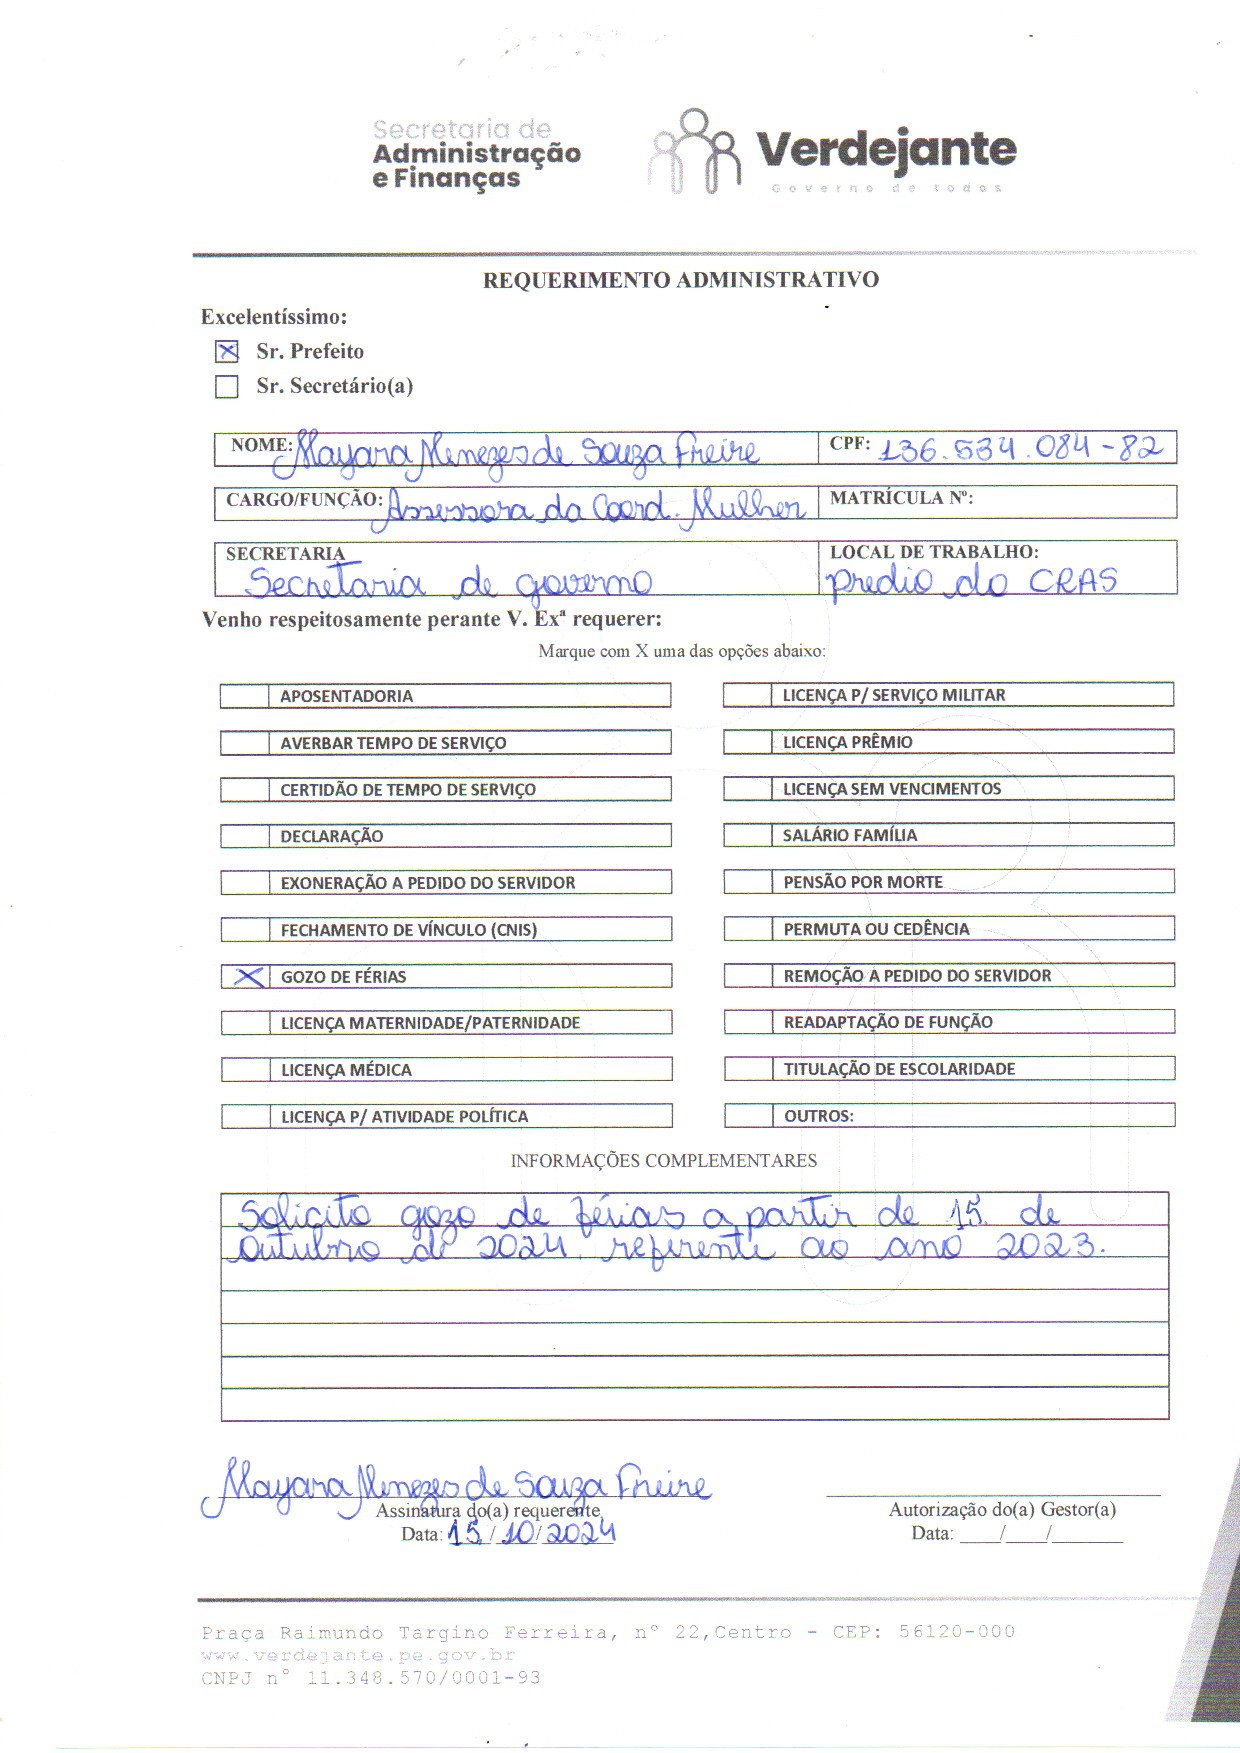 Secretaria de
Administração
e Finanças
Verdejante
Governo de todos
REQUERIMENTO ADMINISTRATIVO
Excelentíssimo:
X Sr. Prefeito
Sr. Secretário(a)
NOME: Mayara Menezes de Souza Freire CPF: 136.534.084-82
CARGO/FUNÇÃO: Assessora da Coord. Mulher MATRÍCULA Nº:
SECRETARIA LOCAL DE TRABALHO:
Secretaria de governo predio do CRAS
Venho respeitosamente perante V. Exª requerer:
Marque com X uma das opções abaixo:
APOSENTADORIA LICENÇA P/ SERVIÇO MILITAR
AVERBAR TEMPO DE SERVIÇO LICENÇA PRÊMIO
CERTIDÃO DE TEMPO DE SERVIÇO LICENÇA SEM VENCIMENTOS
DECLARAÇÃO SALÁRIO FAMÍLIA
EXONERAÇÃO A PEDIDO DO SERVIDOR PENSÃO POR MORTE
FECHAMENTO DE VÍNCULO (CNIS) PERMUTA OU CEDÊNCIA
X GOZO DE FÉRIAS REMOÇÃO A PEDIDO DO SERVIDOR
LICENÇA MATERNIDADE/PATERNIDADE READAPTAÇÃO DE FUNÇÃO
LICENÇA MÉDICA TITULAÇÃO DE ESCOLARIDADE
LICENÇA P/ ATIVIDADE POLÍTICA OUTROS:
INFORMAÇÕES COMPLEMENTARES
Solicito gozo de férias a partir de 15 de
Outubro de 2024 referente ao ano 2023.
Mayara Menezes de Souza Freire
Assinatura do(a) requerente Autorização do(a) Gestor(a)
Data: 15/10/2024 Data: ____/____/_______
Praça Raimundo Targino Ferreira, nº 22,Centro - CEP: 56120-000
www.verdejante.pe.gov.br
CNPJ n° 11.348.570/0001-93